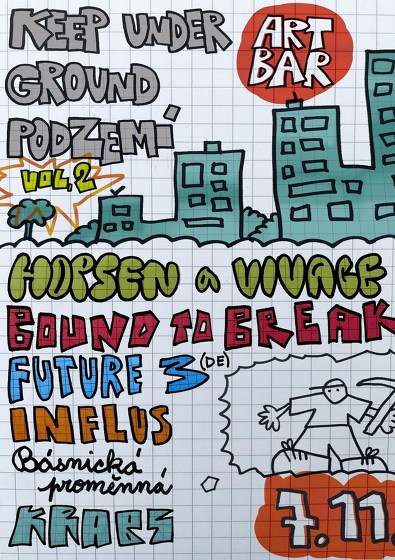 KEEP UNDER
GROUND
PODZEMÍ
VOL, 2
ART
BAR
HOPSEN a VIVAGE
BOUND TO BREAK
FUTURE 3 (DE)
INFLUS
Básnická
proměnná
KRAPS
7.11.